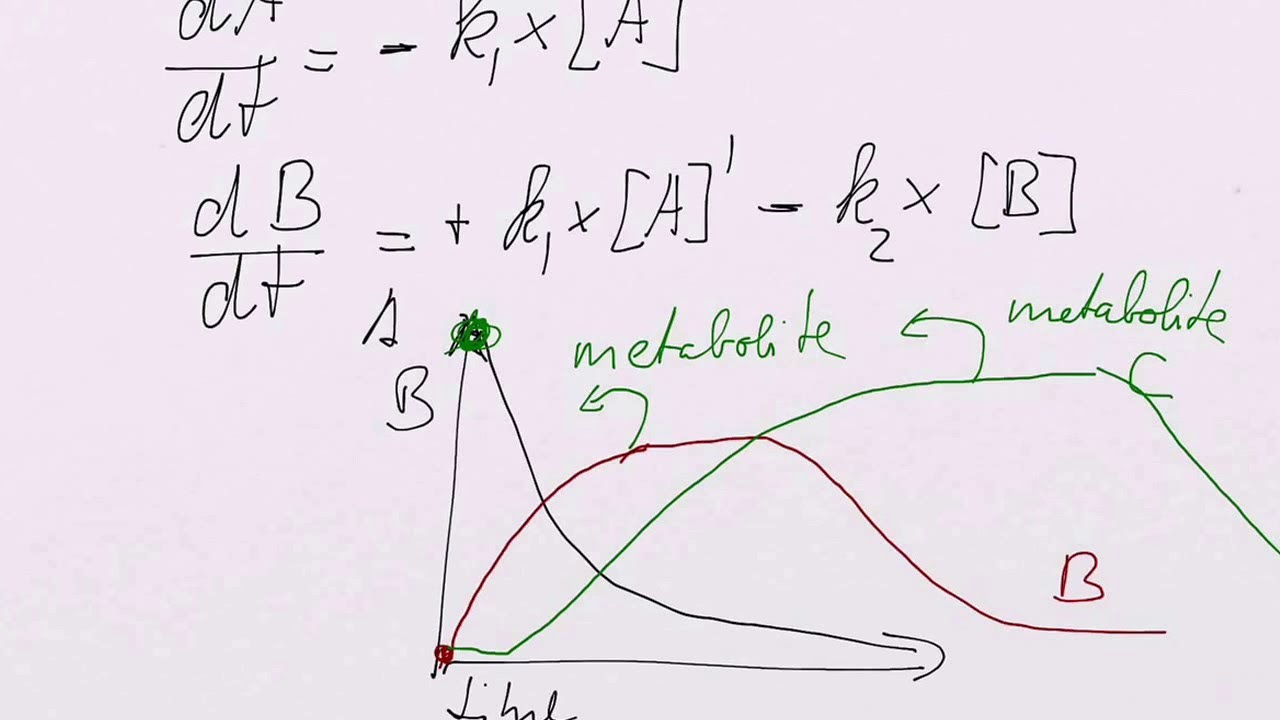 dA
dt = - k₁ × [A]
dB
dt = + k₁ × [A]' - k₂ × [B]
A
B
metabolite
metabolite
C
B
time